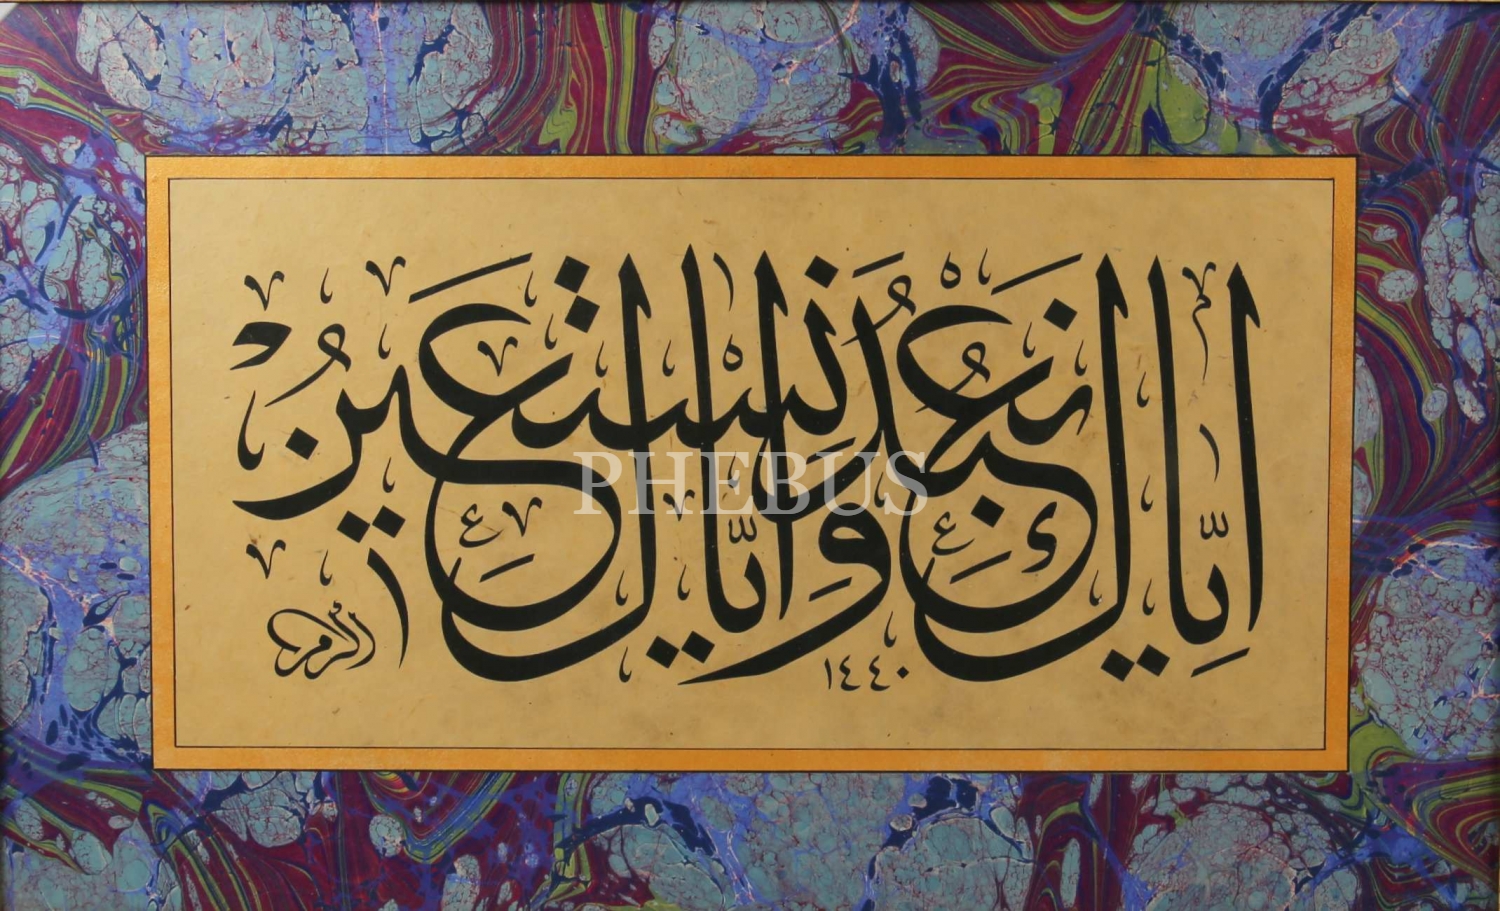 إِيَّاكَ نَعْبُدُ وَإِيَّاكَ نَسْتَعِينُ
١٤٤٠
PHEBUS